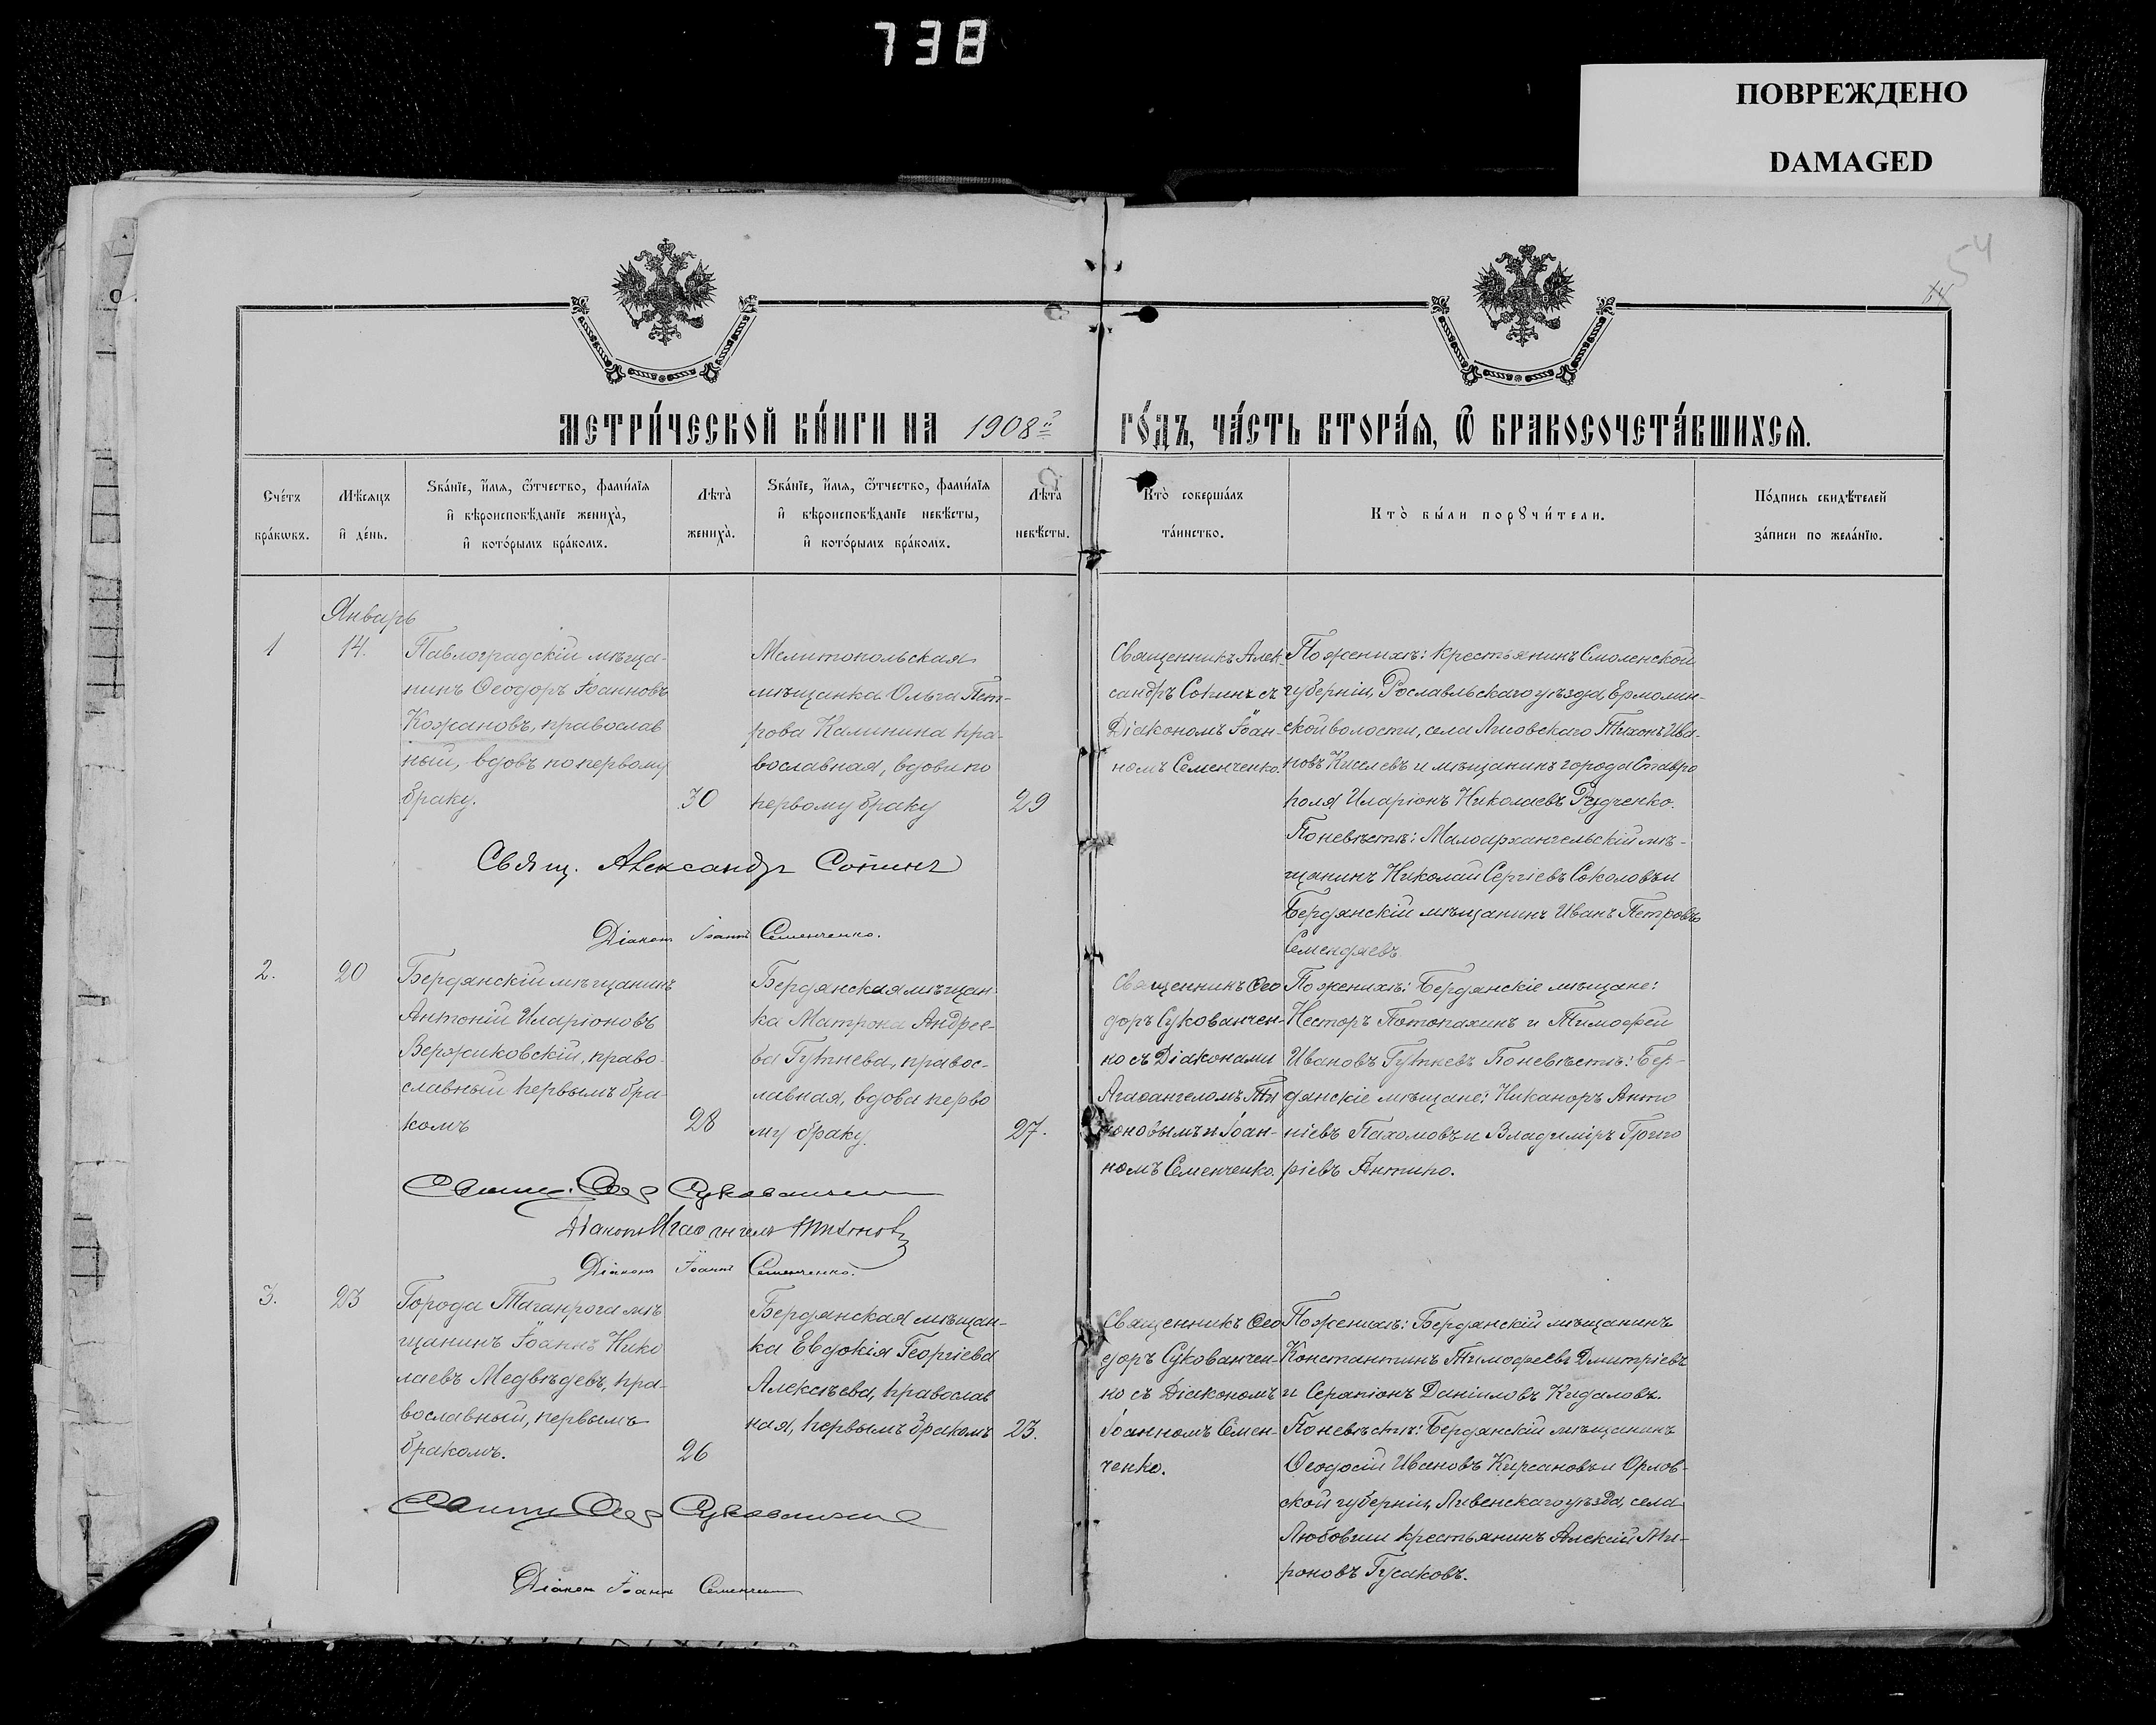 738
ПОВРЕЖДЕНО
DAMAGED
54
МЕТРИ́ЧЕСКОЙ КНИ́ГИ НА 1908й
ГО́ДЪ, ЧА́СТЬ ВТОРА́Я, Ѿ БРАКОСОЧЕТА́ВШИХСЯ.
Сче́тъ
бра́кѡвъ.
Мѣ́сяцъ
и҆ де́нь.
Ѕва́нїе, и҆́мя, ѻ҆́тчество, фами́лїя
и҆ вѣроисповѣ́данїе жениха̀,
и҆ кото́рымъ бра́комъ.
Лѣта̀
жениха̀.
Ѕва́нїе, и҆́мя, ѻ҆́тчество, фами́лїя
и҆ вѣроисповѣ́данїе невѣ́сты,
и҆ кото́рымъ бра́комъ.
Лѣта̀
невѣ́сты.
Кто̀ соверша́лъ
та́инство.
Кто̀ бы́ли порꙋчи́тели.
По́дпись свидѣ́телей
за́писи по жела́нїю.
Январь
1
14.
Павлоградскій мѣща-
нинъ Ѳеодоръ Іоанновъ
Кожановъ, православ
ный, вдовъ по первому
браку.
30
Мелитопольская
мѣщанка Ольга Пет-
рова Калинина пра-
вославная, вдова по
первому браку
29
Священникъ Алек-
сандръ Сопинъ съ
Діакономъ Іоан-
номъ Семенченко.
По женихѣ: крестьянинъ Смоленской
губерніи, Рославльскаго уѣзда Ермолин-
ской волости, села Лисовскаго Тихонъ Ива-
новъ Киселевъ и мѣщанинъ города Ставро
поля Иларіонъ Николаевъ Рудченко.
По невѣстѣ: Малоархангельскій мѣ-
щанинъ Николай Сергіевъ Соколовъ и
Бердянскій мѣщанинъ Иванъ Петровъ
Семендяевъ
Свящ. Александръ Сопинъ
Діаконъ Іоаннъ Семенченко.
2.
20
Бердянскій мѣщанинъ
Антоній Иларіоновъ
Вержиковскій, право-
славный первымъ бра-
комъ
28
Бердянская мѣщан-
ка Матрона Андрее-
ва Гутнева, правос-
лавная, вдова перво
му браку.
27.
Священникъ Ѳео
доръ Сукованчен-
ко съ Діаконами
Агаѳангеломъ Ти
хоновымъ и Іоан-
номъ Семенченко.
По женихѣ: Бердянскіе мѣщане:
Несторъ Потопахинъ и Тимоѳей
Ивановъ Гутневъ По невѣстѣ: Бер-
дянскіе мѣщане: Никаноръ Анто
ніевъ Пахомовъ и Владиміръ Григо
ріевъ Антипо.
Свящ. Ѳеод Сукованченко
Діаконъ Агаѳангелъ Тихоновъ
Діаконъ Іоаннъ Семенченко.
3.
23
Города Таганрога мѣ
щанинъ Іоаннъ Нико
лаевъ Медвѣдевъ, пра-
вославный, первымъ
бракомъ.
26
Бердянская мѣщан-
ка Евдокія Георгіева
Алексѣева, православ
ная, первымъ бракомъ
23.
Священникъ Ѳео
доръ Сукованчен-
ко съ Діакономъ
Іоанномъ Семен-
ченко.
По женихѣ: Бердянскій мѣщанинъ
Константинъ Тимоѳеевъ Дмитріевъ
и Серапіонъ Даніиловъ Кидаловъ.
По невѣстѣ: Бердянскій мѣщанинъ
Ѳеодосій Ивановъ Кирсановъ и Орлов-
ской губерніи, Ливенскаго уѣзда, села
Любовши крестьянинъ Алексій Ми-
роновъ Гусаковъ.
Свящ Ѳеод Сукованченко
Діаконъ Іоаннъ Семенченко